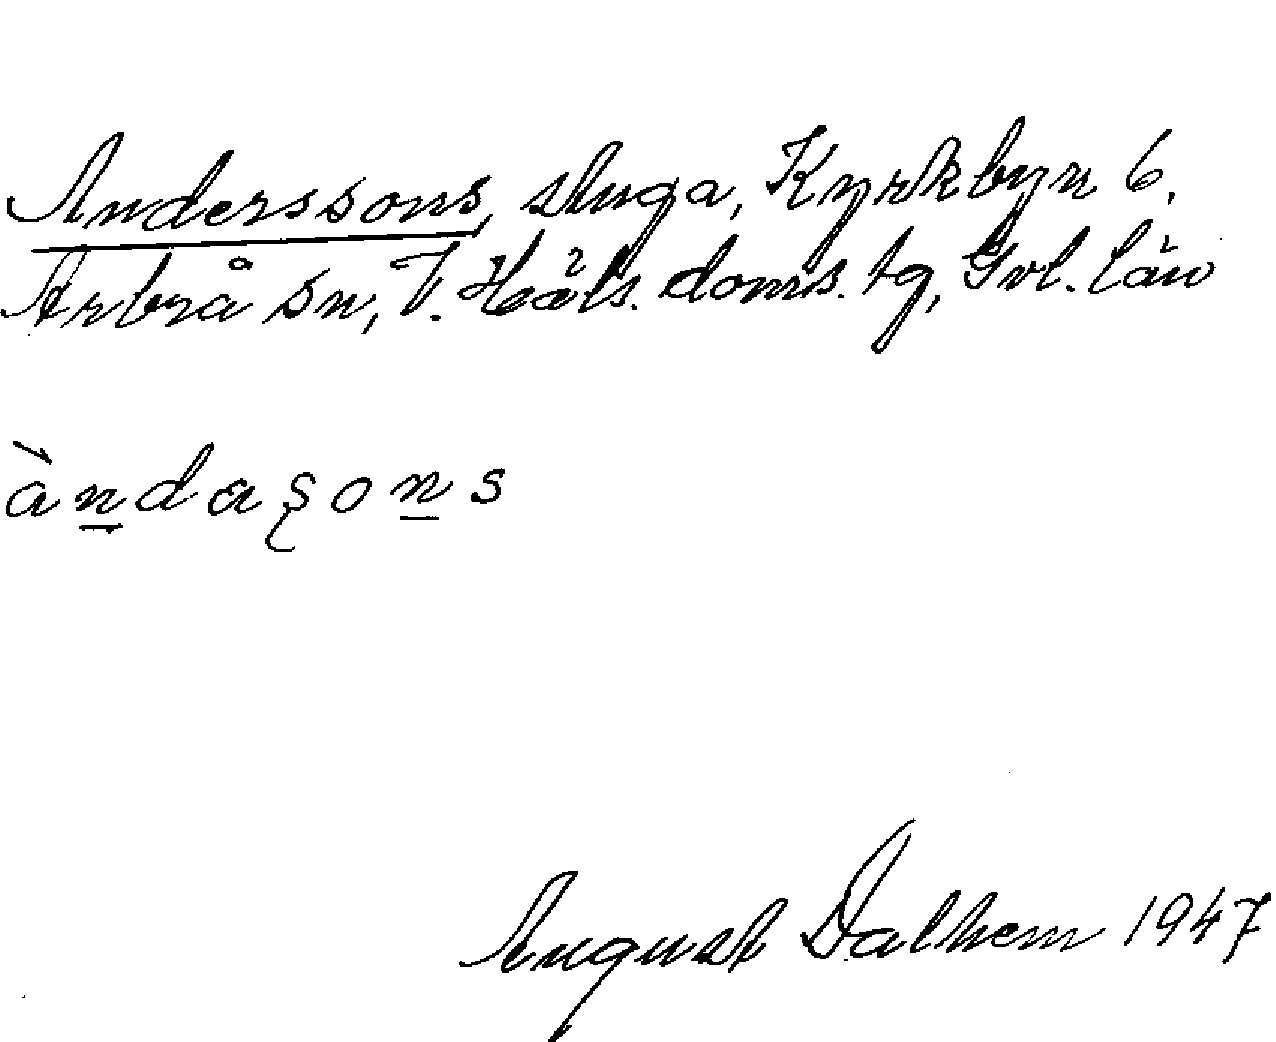 Anderssons, stuga, Kyrkbyn 6,
Arbrå sn, V. Häls. doms. tg, Gvl. län
àndaşons
August Dalhem 1947